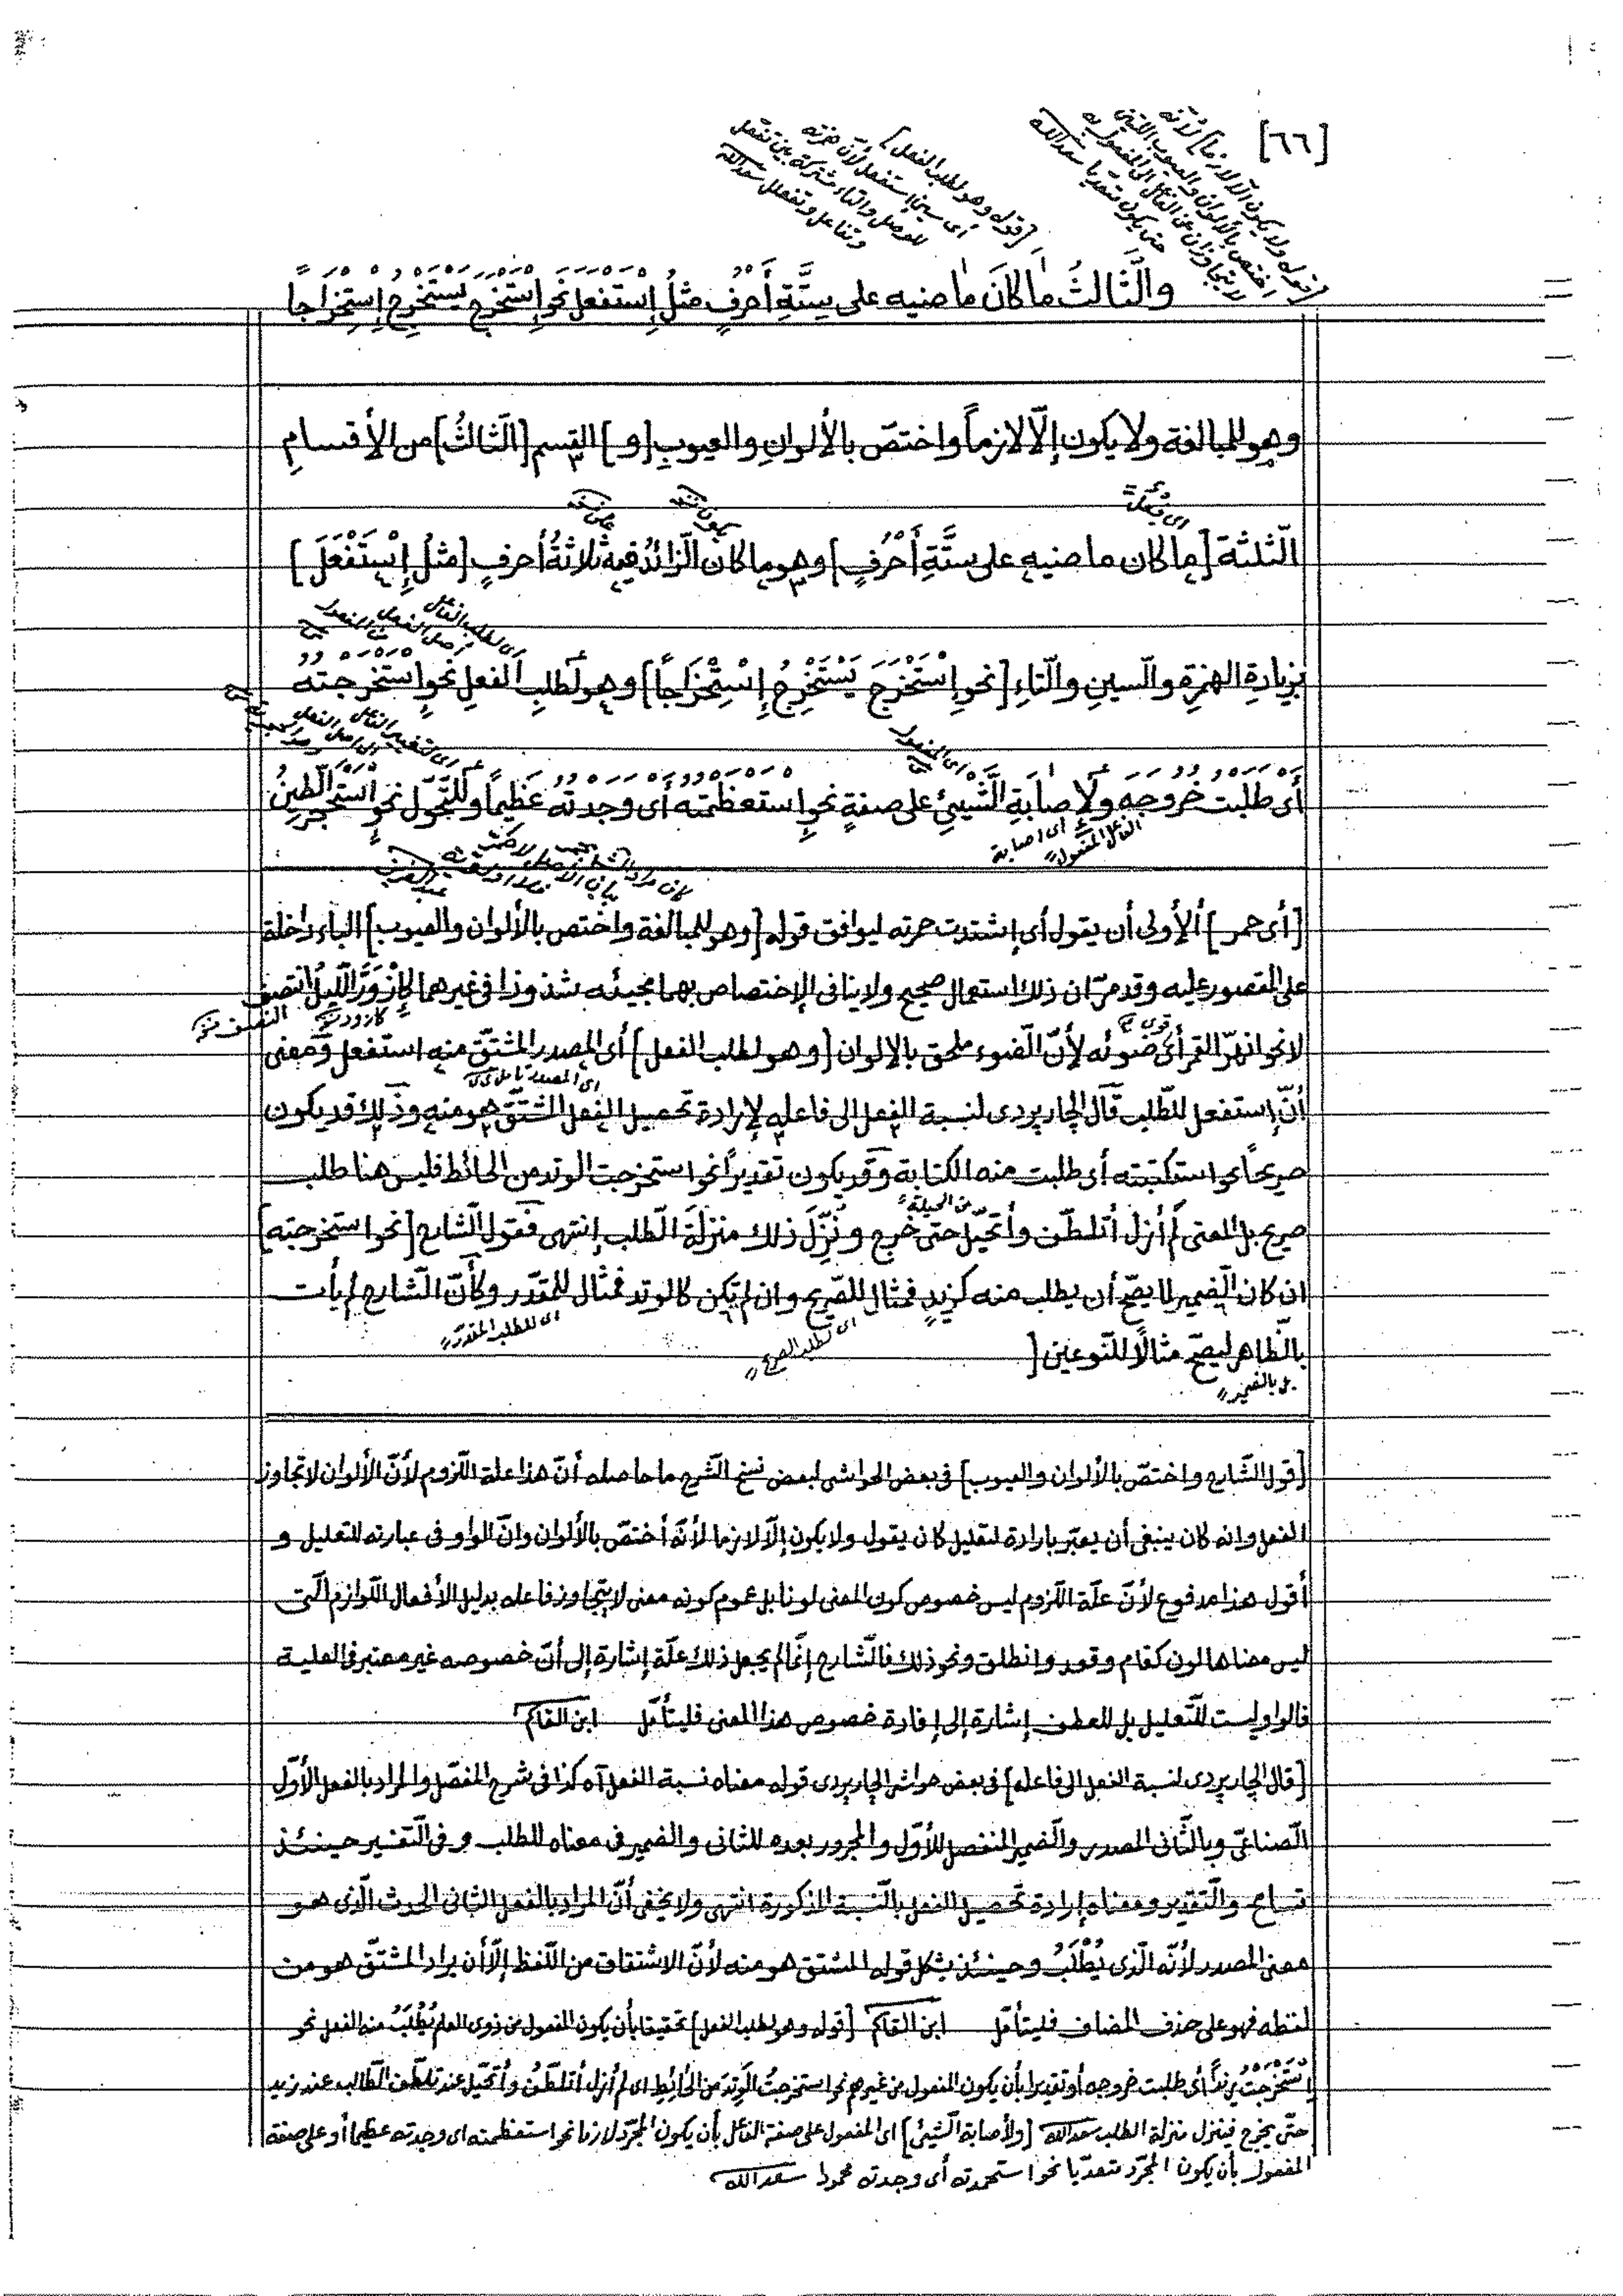 [٦٦]
[قوله ولا يكون الا لازما] لأنه
اختص بالألوان والعيوب اللتين
لا يتجاوزان عن الفاعل الى المفعول به
حتى يكون متعديا سعدالله
[قوله وهو لطلب الفعل]
أى سين استفعل لأن همزته
للوصل والتاء مشتركة بين تفعل
وتفاعل وتفعلل سعدالله
والثَّالثُ مَا كَانَ مَاضيه على سِتَّةِ أَحْرُفٍ مثلُ إِسْتَفْعَلَ نحو إِسْتَخْرَجَ يَسْتَخْرِجُ إِسْتِخْرَاجًا
وهو للمبالغة ولا يكون إلّا لازماً واختصّ بالألوانِ والعيوبِ [و] القسم [الثَّالثُ] من الأقسامِ
اى فعل
يكون
الثّلثة [ما كان ماضيه على ستَّةِ أَحْرُفٍ] وهو ما كان الزّائدُ فيه ثلاثةُ أحرفٍ [مثلُ إِسْتَفْعَلَ]
اى لطلب الفاعل
اصل الفعل
من المفعول
بزيادةِ الهمزةِ والسينِ والتاءِ [نحو إِسْتَخْرَجَ يَسْتَخْرِجُ إِسْتِخْرَاجًا] وهو لطلبِ الفعلِ نحو إستخرجته
اى المفعول
اى لتغيير الفاعل
الى اصل الفعل
أى طَلَبت خُروجَه ولإصابَةِ الشّيئِ على صفةٍ نحو إستعظمته أى وجدتهُ عَظيماً وللتَّحوّل نحو إستحجر الطّينُ
اى اصابة
الفاعل المفعول
[أى حمر] ألأولى أن يقول أى إشتدت حمرته ليوافق قوله [وهو للمبالغة واختص بالألوان والعيوب] الباء داخلة
على المقصور عليه وقد مرّ ان ذلك استعمال صحيح ولا ينافى الإختصاص بهما مجيئه شذوذا فى غيرهما كإزْوَرَّ اللّيلُ انتصف
قوى
لا نحو انهرّ القمر أى ضوئه لأنّ الضوء ملحق بالالوان [وهو لطلب الفعل] أى المصدر المشتقّ منه استفعل ومعنى
اى المصدر
أنّ إستفعل للطّلب قال الچارپردى لنسبة الفعل الى فاعله لإرادة تحصيل الفعل المشتقّ هو منه وذلك قد يكون
صريحاً نحو استكتبته أى طلبت منه الكتابة وقد يكون تقديراً نحو استخرجت الوتد من الحائط فليس هنا طلب
من الحيلة
صريح بل المعنى لم أزل أتلطّف وأتحيّل حتى خرج ونُزِّلَ ذلك منزلَةَ الطّلب إنتهى فقول الشّارح [نحو استخرجته]
ان كان الضمير لما يصحّ أن يطلب منه كزيدٍ فمثال للصّريح وان لم يكن كالوتد فمثال للمقدّر وكأنّ الشّارح لم يأت
اى لطلب الصريح
اى للطلب المقدر
بالظّاهر ليصحّ مثالًا للنّوعين [
بل بالضمير
[قول الشّارح واختصّ بالألوان والعيوب] فى بعض الحواشى لبعض نسخ الشّرح ما حاصله أنّ هذا علة اللّزوم لأنّ الألوان لا تجاوز
الفعل وانه كان ينبغى أن يعبّر بارادة لتعليل كان يقول ولا يكون إلّا لازما لأنّه أختصّ بالألوان وانّ الواو فى عبارته للتعليل و
أقول هذا مدفوع لأنّ علّة اللّزوم ليس خصوص كون المعنى لونا بل عموم كونه معنى لا يتجاوز فاعله بدليل الأفعال اللّوازم الّتى
ليس معناها لون كقام وقعد وانطلق ونحو ذلك فالشّارح إنّما لم يجعل ذلك علّة إشارة إلى أنّ خصوصه غير معتبر فى العلية
فالواو ليست للتّعليل بل للعطف إشارة إلى إفادة خصوص هذا المعنى فليتأمّل ابن القاسم
[قال الچارپردى لنسبة الفعل الى فاعله] فى بعض حواشى الچارپردى قوله معناه نسبة الفعل آه كذا فى شرح المفصّل والمراد بالفعل الأوّل
الصّناعىّ وبالثّانى المصدر والضمير المنفصل للأوّل والمجرور بعده للثانى والضمير فى معناه للطلب وفى التّفسير حينئذ
تسامح والتّقدير ومعناه إرادة تحصيل الفعل بالنّسبة المذكورة انتهى ولا يخفى أنّ المراد بالفعل الثانى الحدث الّذى هو
معنى المصدر لأنّه الّذى يُطْلَبُ وحينئذ يشكل قوله المشتق هو منه لأنّ الاشتقاق من اللّفظ إلّا أن يراد المشتقّ هو من
لفظه فهو على حذف المضاف فليتأمّل ابن القاسم [قوله وهو لطلب الفعل] تحقيقا بأن يكون المفعول من ذوى العلم يُطْلَبُ منه الفعل نحو
إِسْتَخْرَجْتُ زيداً أى طلبت خروجه أو تقديرا بأن يكون المفعول من غيرهم نحو استخرجتُ الوَتِدَ من الحائِطِ اى لم أزل أتلطّفُ وأتحيّل عند تلطّف الطّالب عند زيد
حتّى يخرج فينزل منزلة الطلب سعدالله [ولأصابة الشّيئ] اى المفعول على صفة الفاعل بأن يكون المجرّد لازما نحو استعظمته اى وجدته عظيما أو على صفة
المفعول بأن يكون المجرّد متعدّيا نحو استحمدته أى وجدته محمودا سعدالله